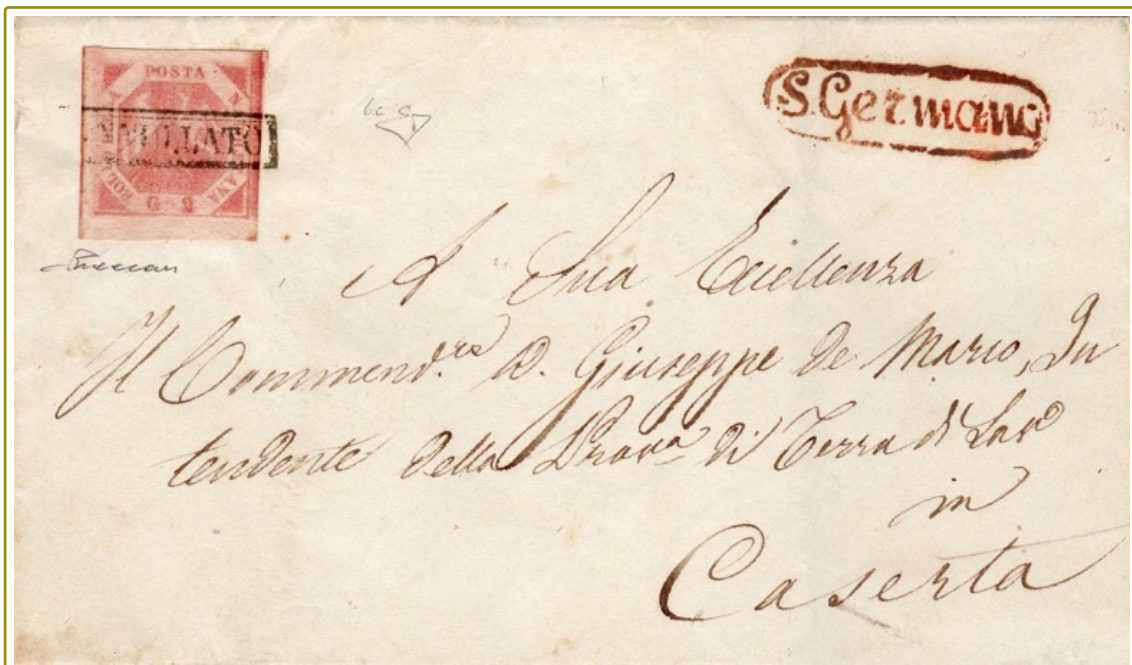 POSTA NAPOLETANA
ANNULLATO
BOL
G 2
S. Germano
A Sua Eccellenza
Il Commend.re D. Giuseppe de Marco, In
tendente della Prov.a di Terra di Lav.o
in
Caserta